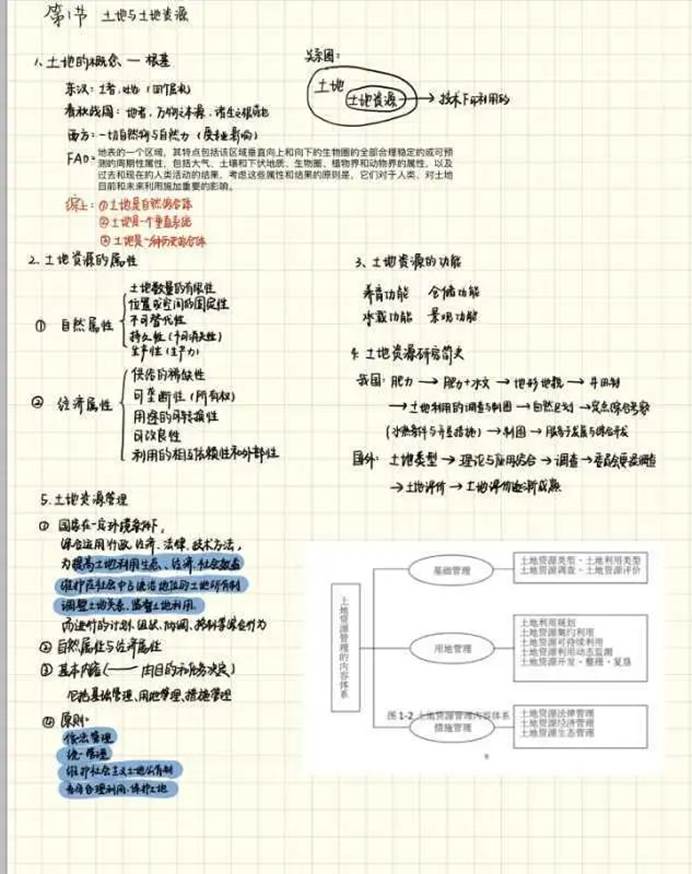 第1节 土地与土地资源
1.土地的概念 — 根基
关系图：
土地
土地资源 → 技术下可利用的
东汉：土者，吐也
春秋战国：地者，万物之本原，诸生之根菀也
西方：一切自然物与自然力
FAO：地表的一个区域，其特点包括该区域垂直向上和向下的生物圈的全部合理稳定的或可预
测的周期性属性，包括大气、土壤和下伏地质、生物圈、植物界和动物界的属性，以及
过去和现在的人类活动的结果，考虑这些属性和结果的原则是，它们对于人类、对土地
目前和未来利用施加重要的影响。
综上：①土地是自然综合体
②土地是一个垂直系统
③土地是一种历史综合体
2.土地资源的属性
① 自然属性
土地数量的有限性
位置或空间的固定性
不可替代性
持久性（不可消失性）
生产性（生产力）
② 经济属性
供给的稀缺性
可垄断性（所有权）
用途的可转换性
可改良性
利用的相互依赖性和外部性
3、土地资源的功能
养育功能 仓储功能
承载功能 景观功能
4.土地资源研究简史
我国：肥力 → 肥力+水文 → 地形地貌 → 井田制
→ 土地利用的调查与制图 → 自然区划 → 定点综合考察
→ 制图 → 服务于发展与综合开发
国外：土地类型 → 理论与应用结合 → 调查
→ 土地评价 → 土地评价逐渐成熟
5.土地资源管理
① 国家在一定环境条件下，
综合运用行政、经济、法律、技术方法，
为提高土地利用生态、经济、社会效益
维护在社会中占统治地位的土地所有制
调整土地关系、监督土地利用
而进行的计划、组织、协调、控制等综合行为
② 自然属性与经济属性
③ 基本内容（—— 由目的和任务决定）
包括基础管理、用地管理、措施管理
④ 原则：
依法管理
统一管理
维护社会主义土地公有制
充分合理利用、保护土地
土地资源管理的内容体系
基础管理
土地资源类型、土地利用类型
土地资源调查、土地资源评价
用地管理
土地利用规划
土地资源集约利用
土地资源可持续利用
土地资源利用动态监测
土地资源开发、整理、复垦
图 1-2 土地资源管理内容体系
措施管理
土地资源法律管理
土地资源经济管理
土地资源生态管理